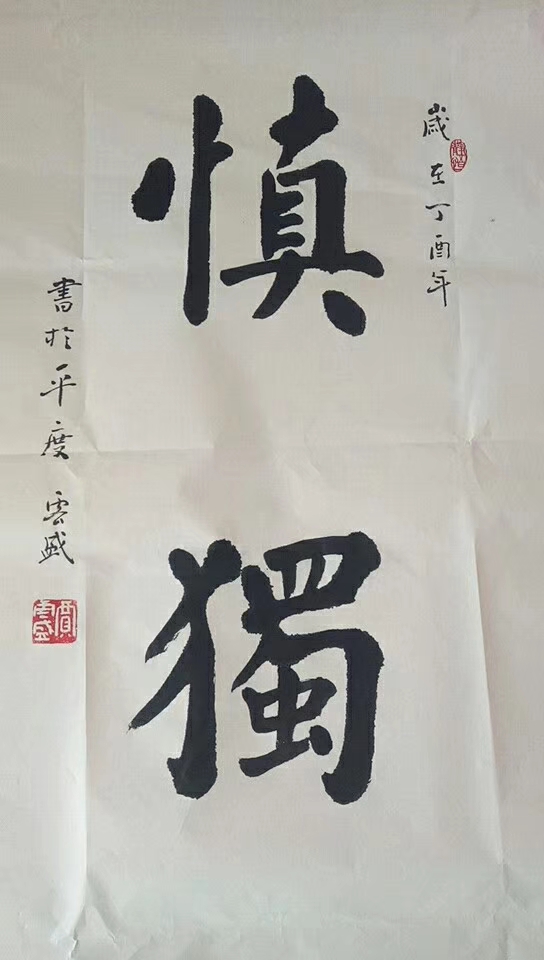 歲在丁酉年
慎獨
書於平度 雲盛